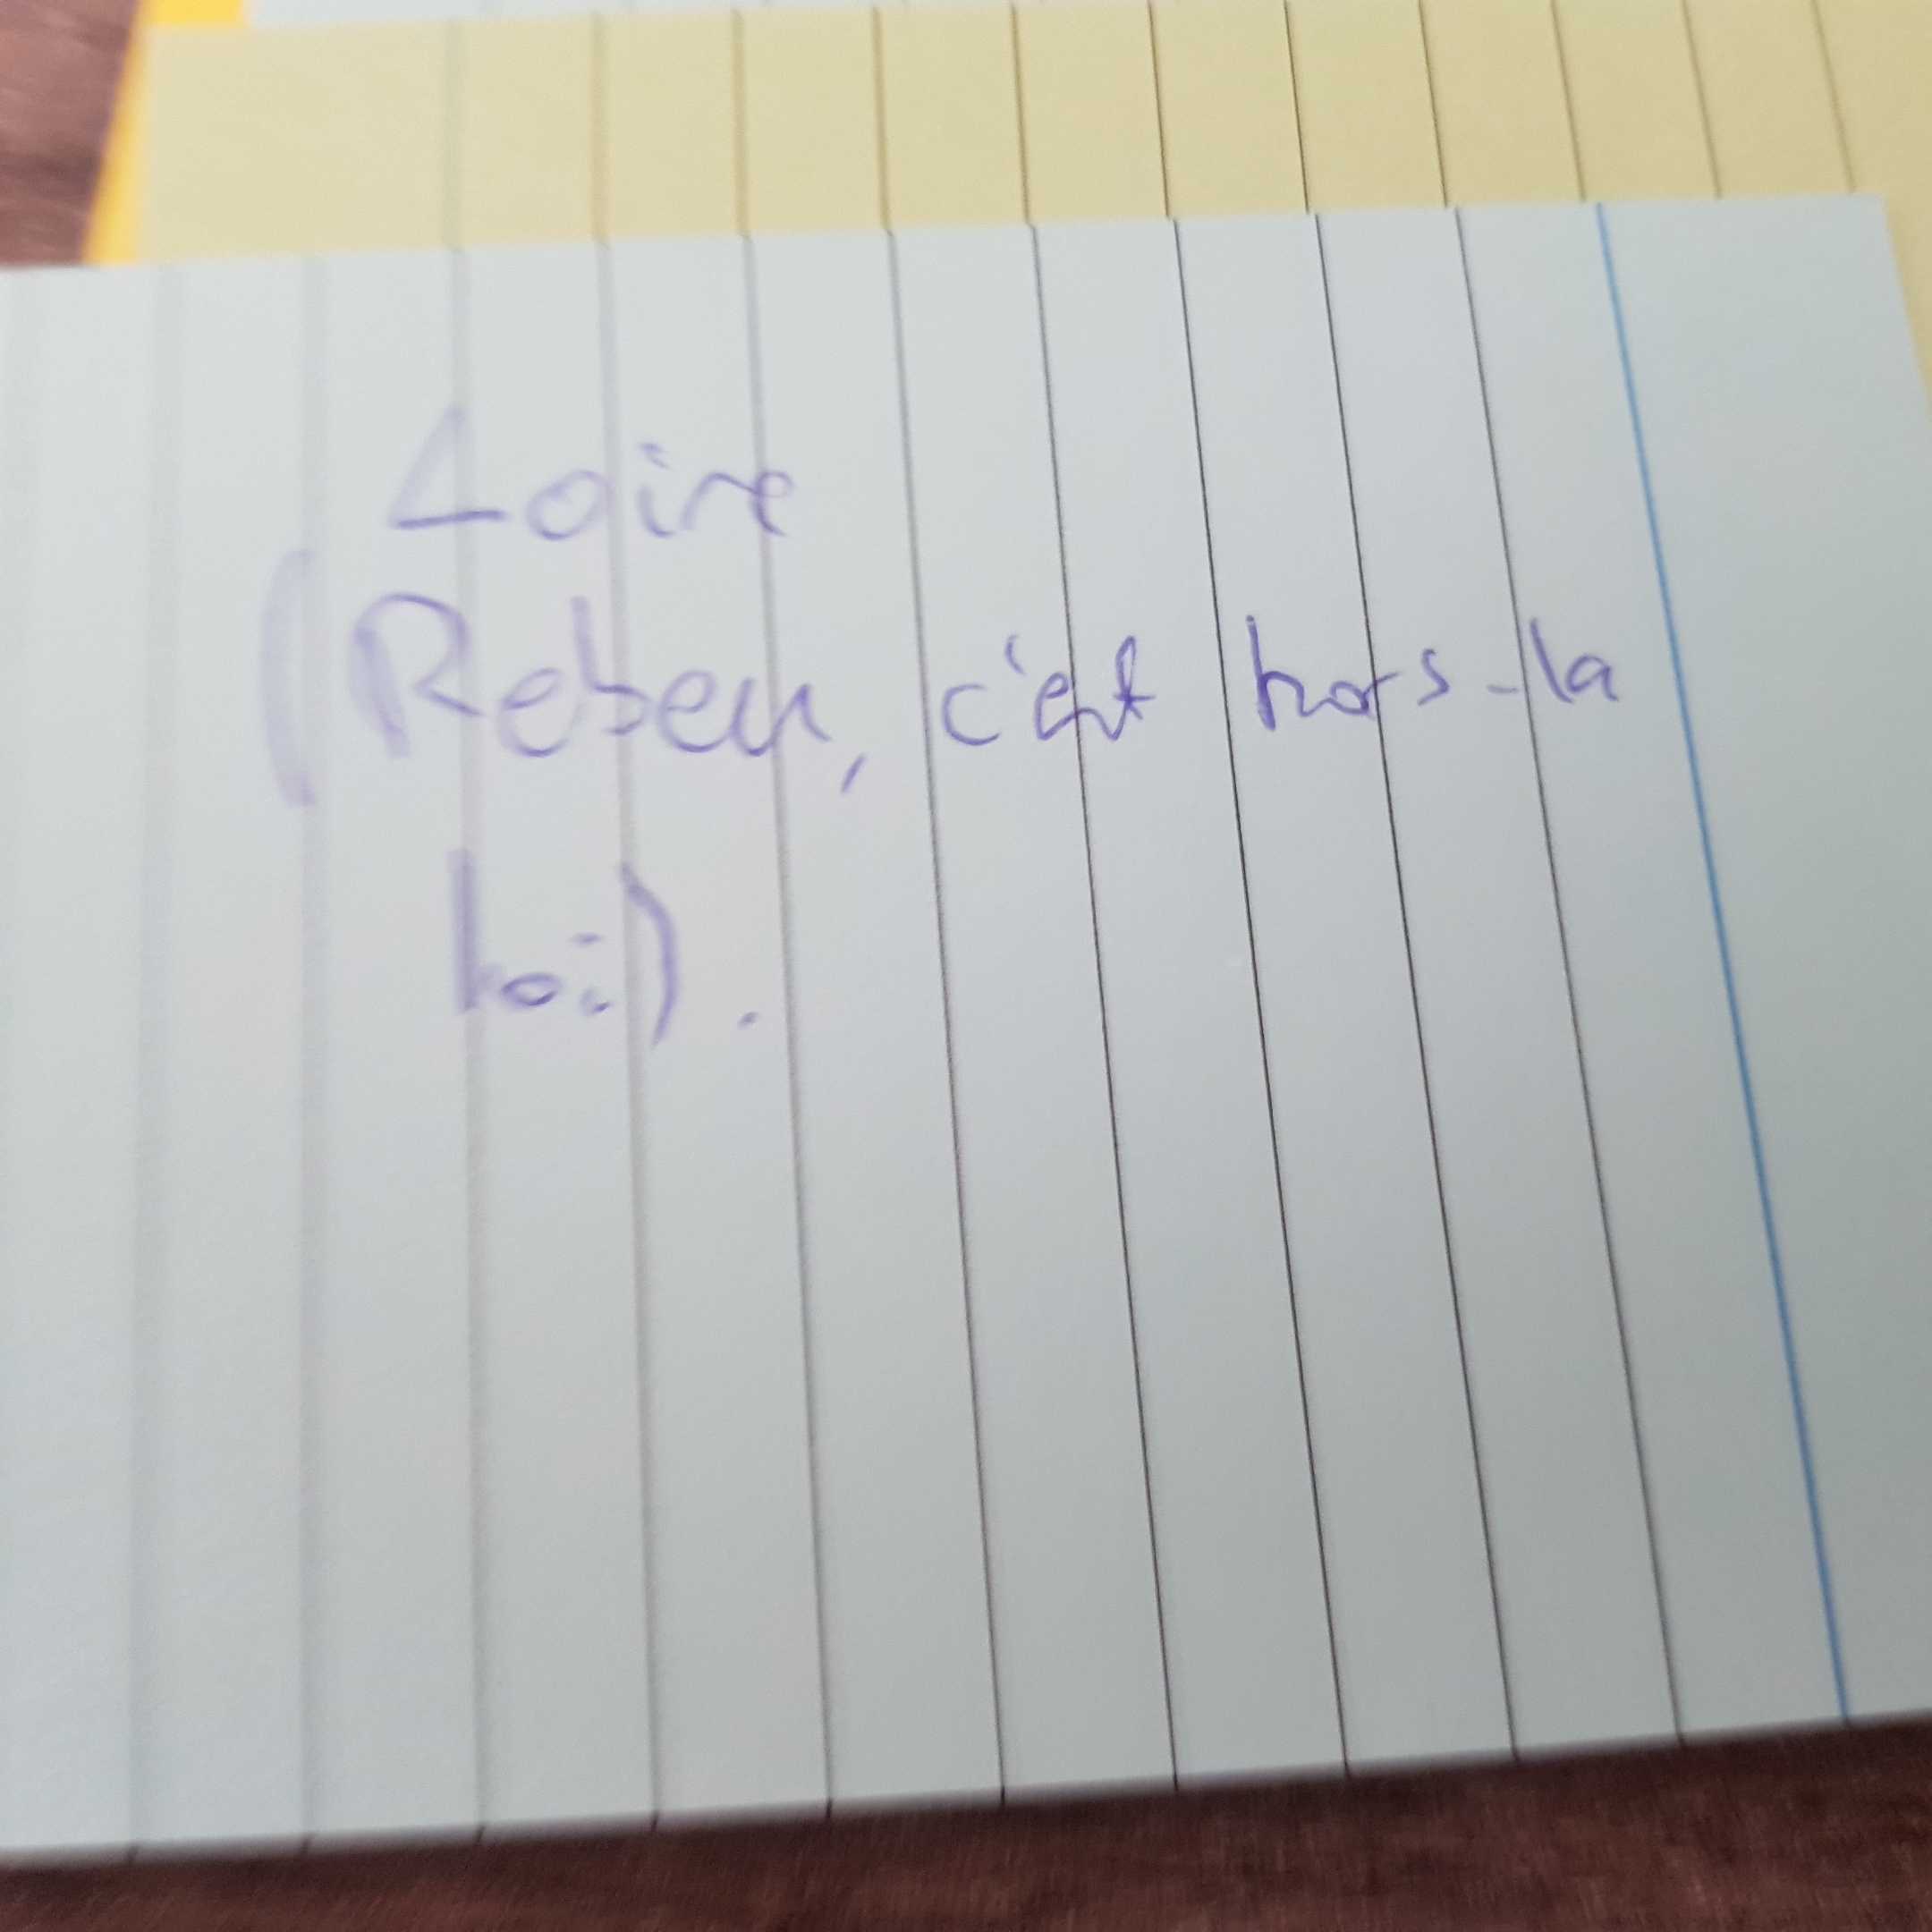 Loire
(Rebeu, c'est hors-la
loi).